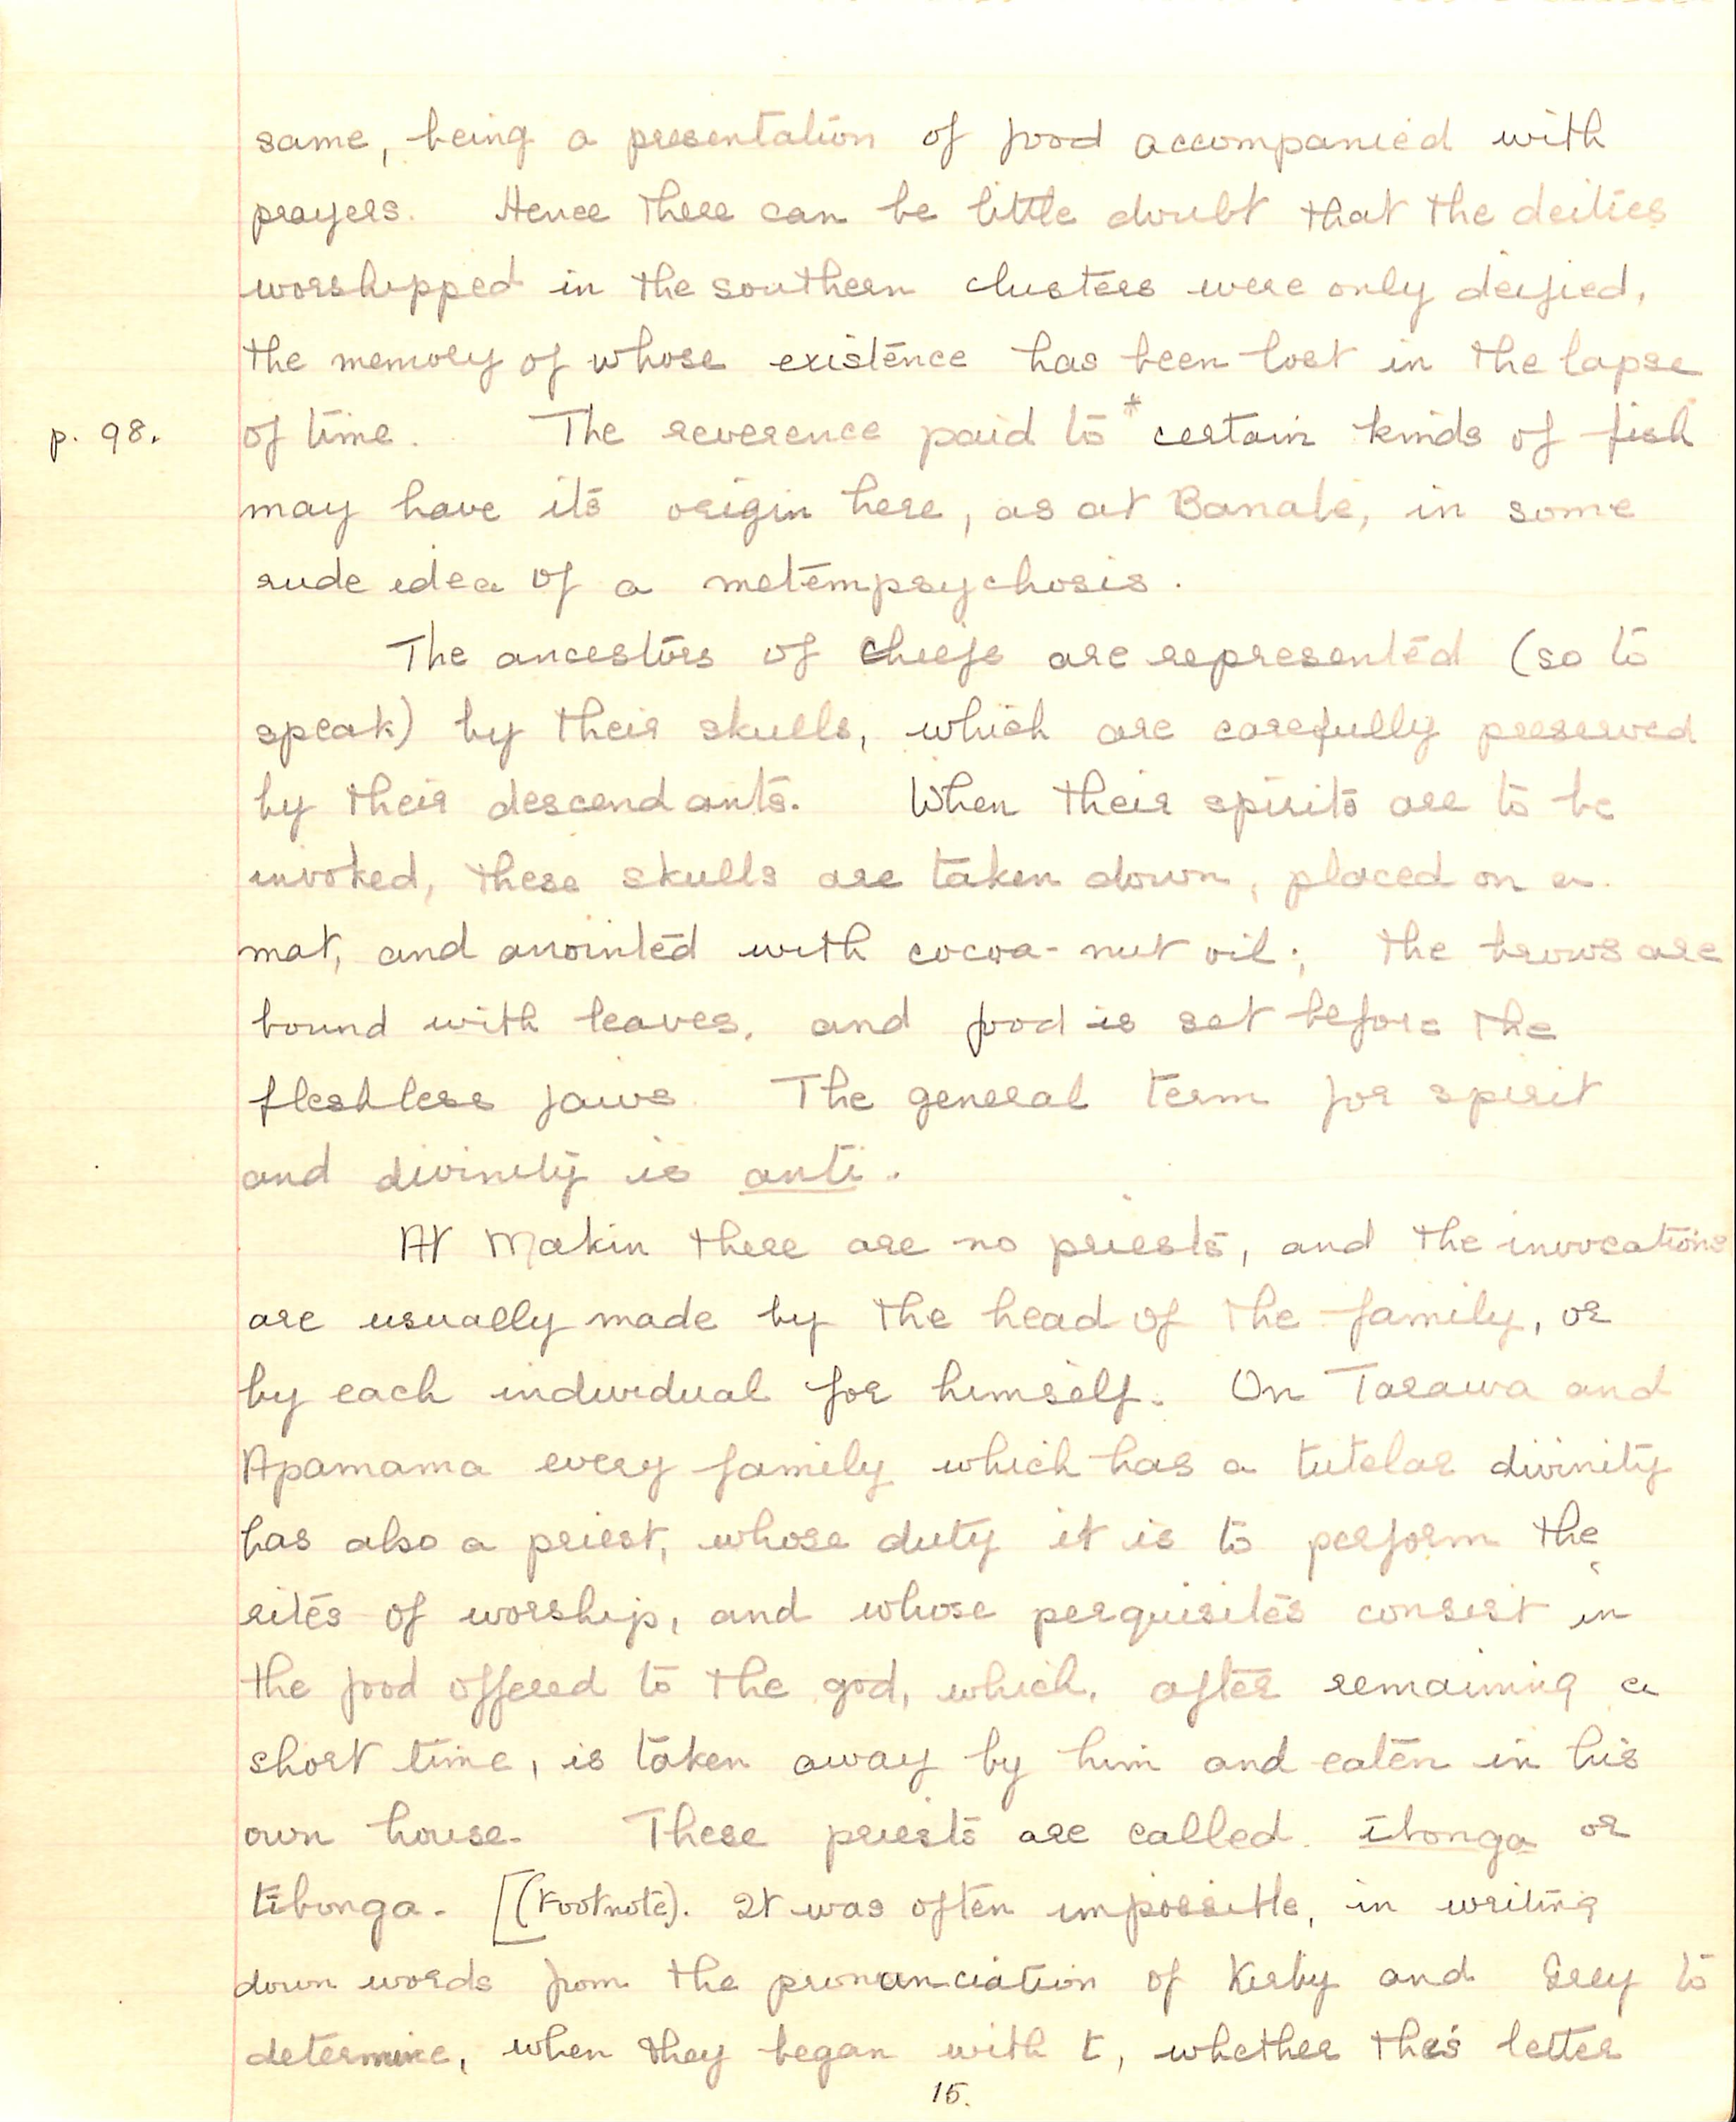 same, being a presentation of food accompanied with
prayers. Hence there can be little doubt that the deities
worshipped in the southern clusters were only deified,
the memory of whose existence has been lost in the lapse
p. 98. of time. The reverence paid to * certain kinds of fish
may have its origin here, as at Banabe, in some
rude idea of a metempsychosis.
The ancestors of chiefs are represented (so to
speak) by their skulls, which are carefully preserved
by their descendants. When their spirits are to be
invoked, these skulls are taken down, placed on a
mat, and anointed with cocoa-nut oil; the brows are
bound with leaves, and food is set before the
fleshless jaws. The general term for spirit
and divinity is anti.
At Makin there are no priests, and the invocations
are usually made by the head of the family, or
by each individual for himself. On Tarawa and
Apamama every family which has a tutelar divinity
has also a priest, whose duty it is to perform the
rites of worship, and whose perquisites consist in
the food offered to the god, which, after remaining a
short time, is taken away by him and eaten in his
own house. These priests are called ibonga or
tibonga. [(Footnote). It was often impossible, in writing
down words from the pronunciation of Kirby and Grey to
determine, when they began with t, whether this letter
15.